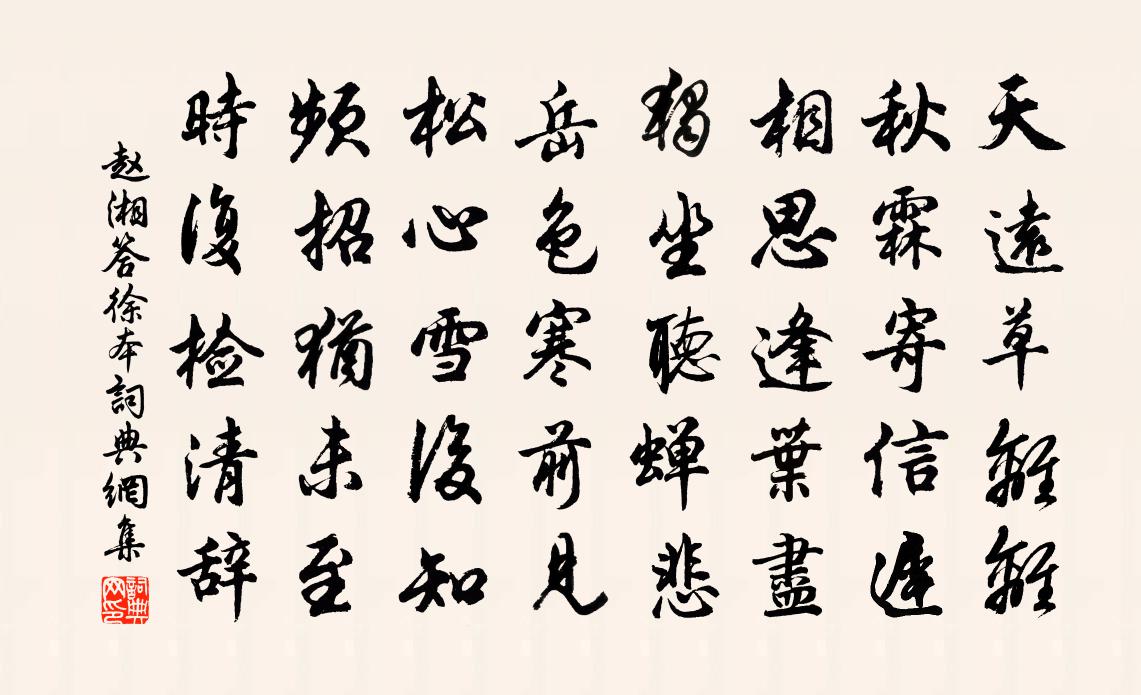 天遠草離離
秋霖寄信遲
相思逢葉盡
獨坐聽蟬悲
岳色寒前見
松心雪後知
頻招猶未至
時復檢清辞
赵湘答徐本詞典網集
詞典网印